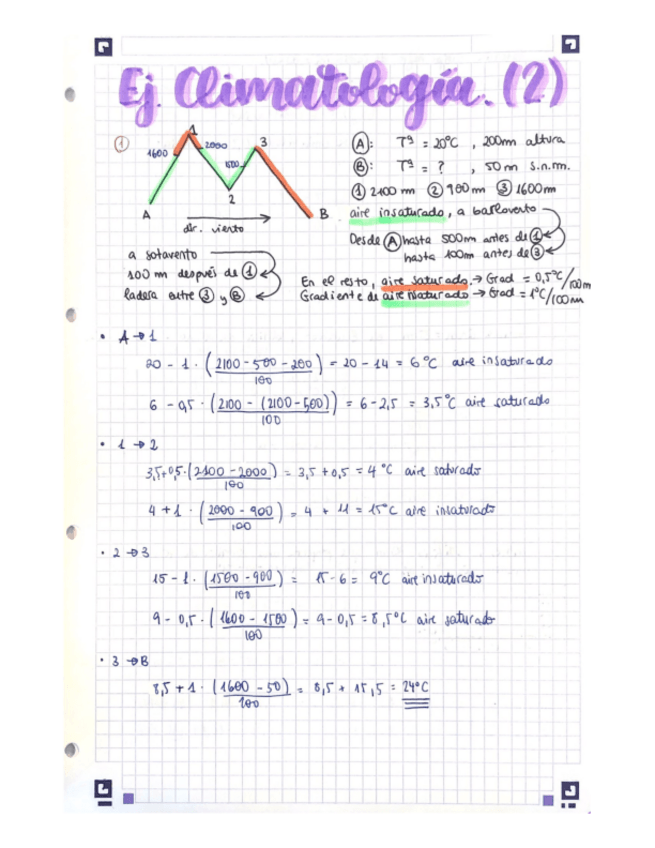 Ej. Climatología. (2)
①
1
1600
2000
3
1500
A
2
B
dir. viento
Ⓐ: Tª = 20°C , 200m altura
Ⓑ: Tª = ? , 50 m s.n.m.
① 2100 m ② 900 m ③ 1600m
aire insaturado, a barlovento
Desde Ⓐ hasta 500m antes de ①
hasta 100m antes de ③
a sotavento
100 m después de ①
ladera entre ③ y Ⓑ
En el resto, aire saturado. → Grad = 0,5°C/100m
Gradiente de aire insaturado → Grad = 1°C/100m
• A → 1
20 - 1 · (2100 - 500 - 200 / 100) = 20 - 14 = 6°C aire insaturado
6 - 0,5 · (2100 - (2100 - 500) / 100) = 6 - 2,5 = 3,5°C aire saturado
• 1 → 2
3,5 + 0,5 · (2100 - 2000 / 100) = 3,5 + 0,5 = 4°C aire saturado
4 + 1 · (2000 - 900 / 100) = 4 + 11 = 15°C aire insaturado
• 2 → 3
15 - 1 · (1500 - 900 / 100) = 15 - 6 = 9°C aire insaturado
9 - 0,5 · (1600 - 1500 / 100) = 9 - 0,5 = 8,5°C aire saturado
• 3 → B
8,5 + 1 · (1600 - 50 / 100) = 8,5 + 15,5 = 24°C